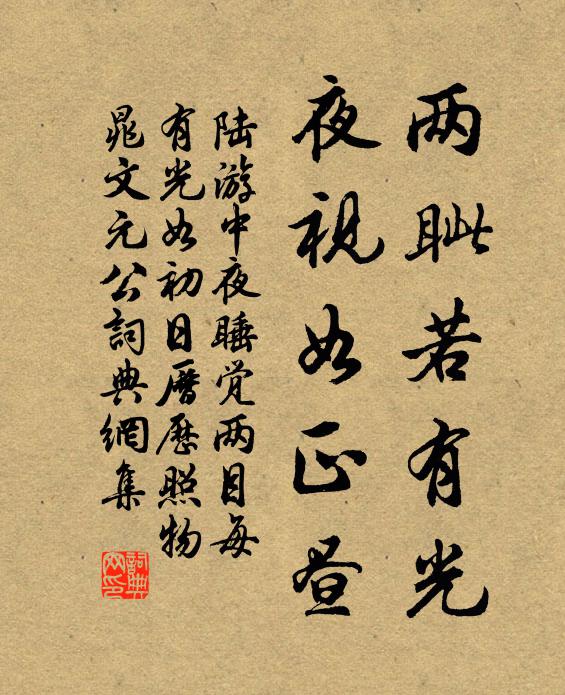 两眦若有光
夜視如正昼
陆游中夜睡觉两目每
有光如初日曆歷照物
晁文元公詞典網集
詞典
网印